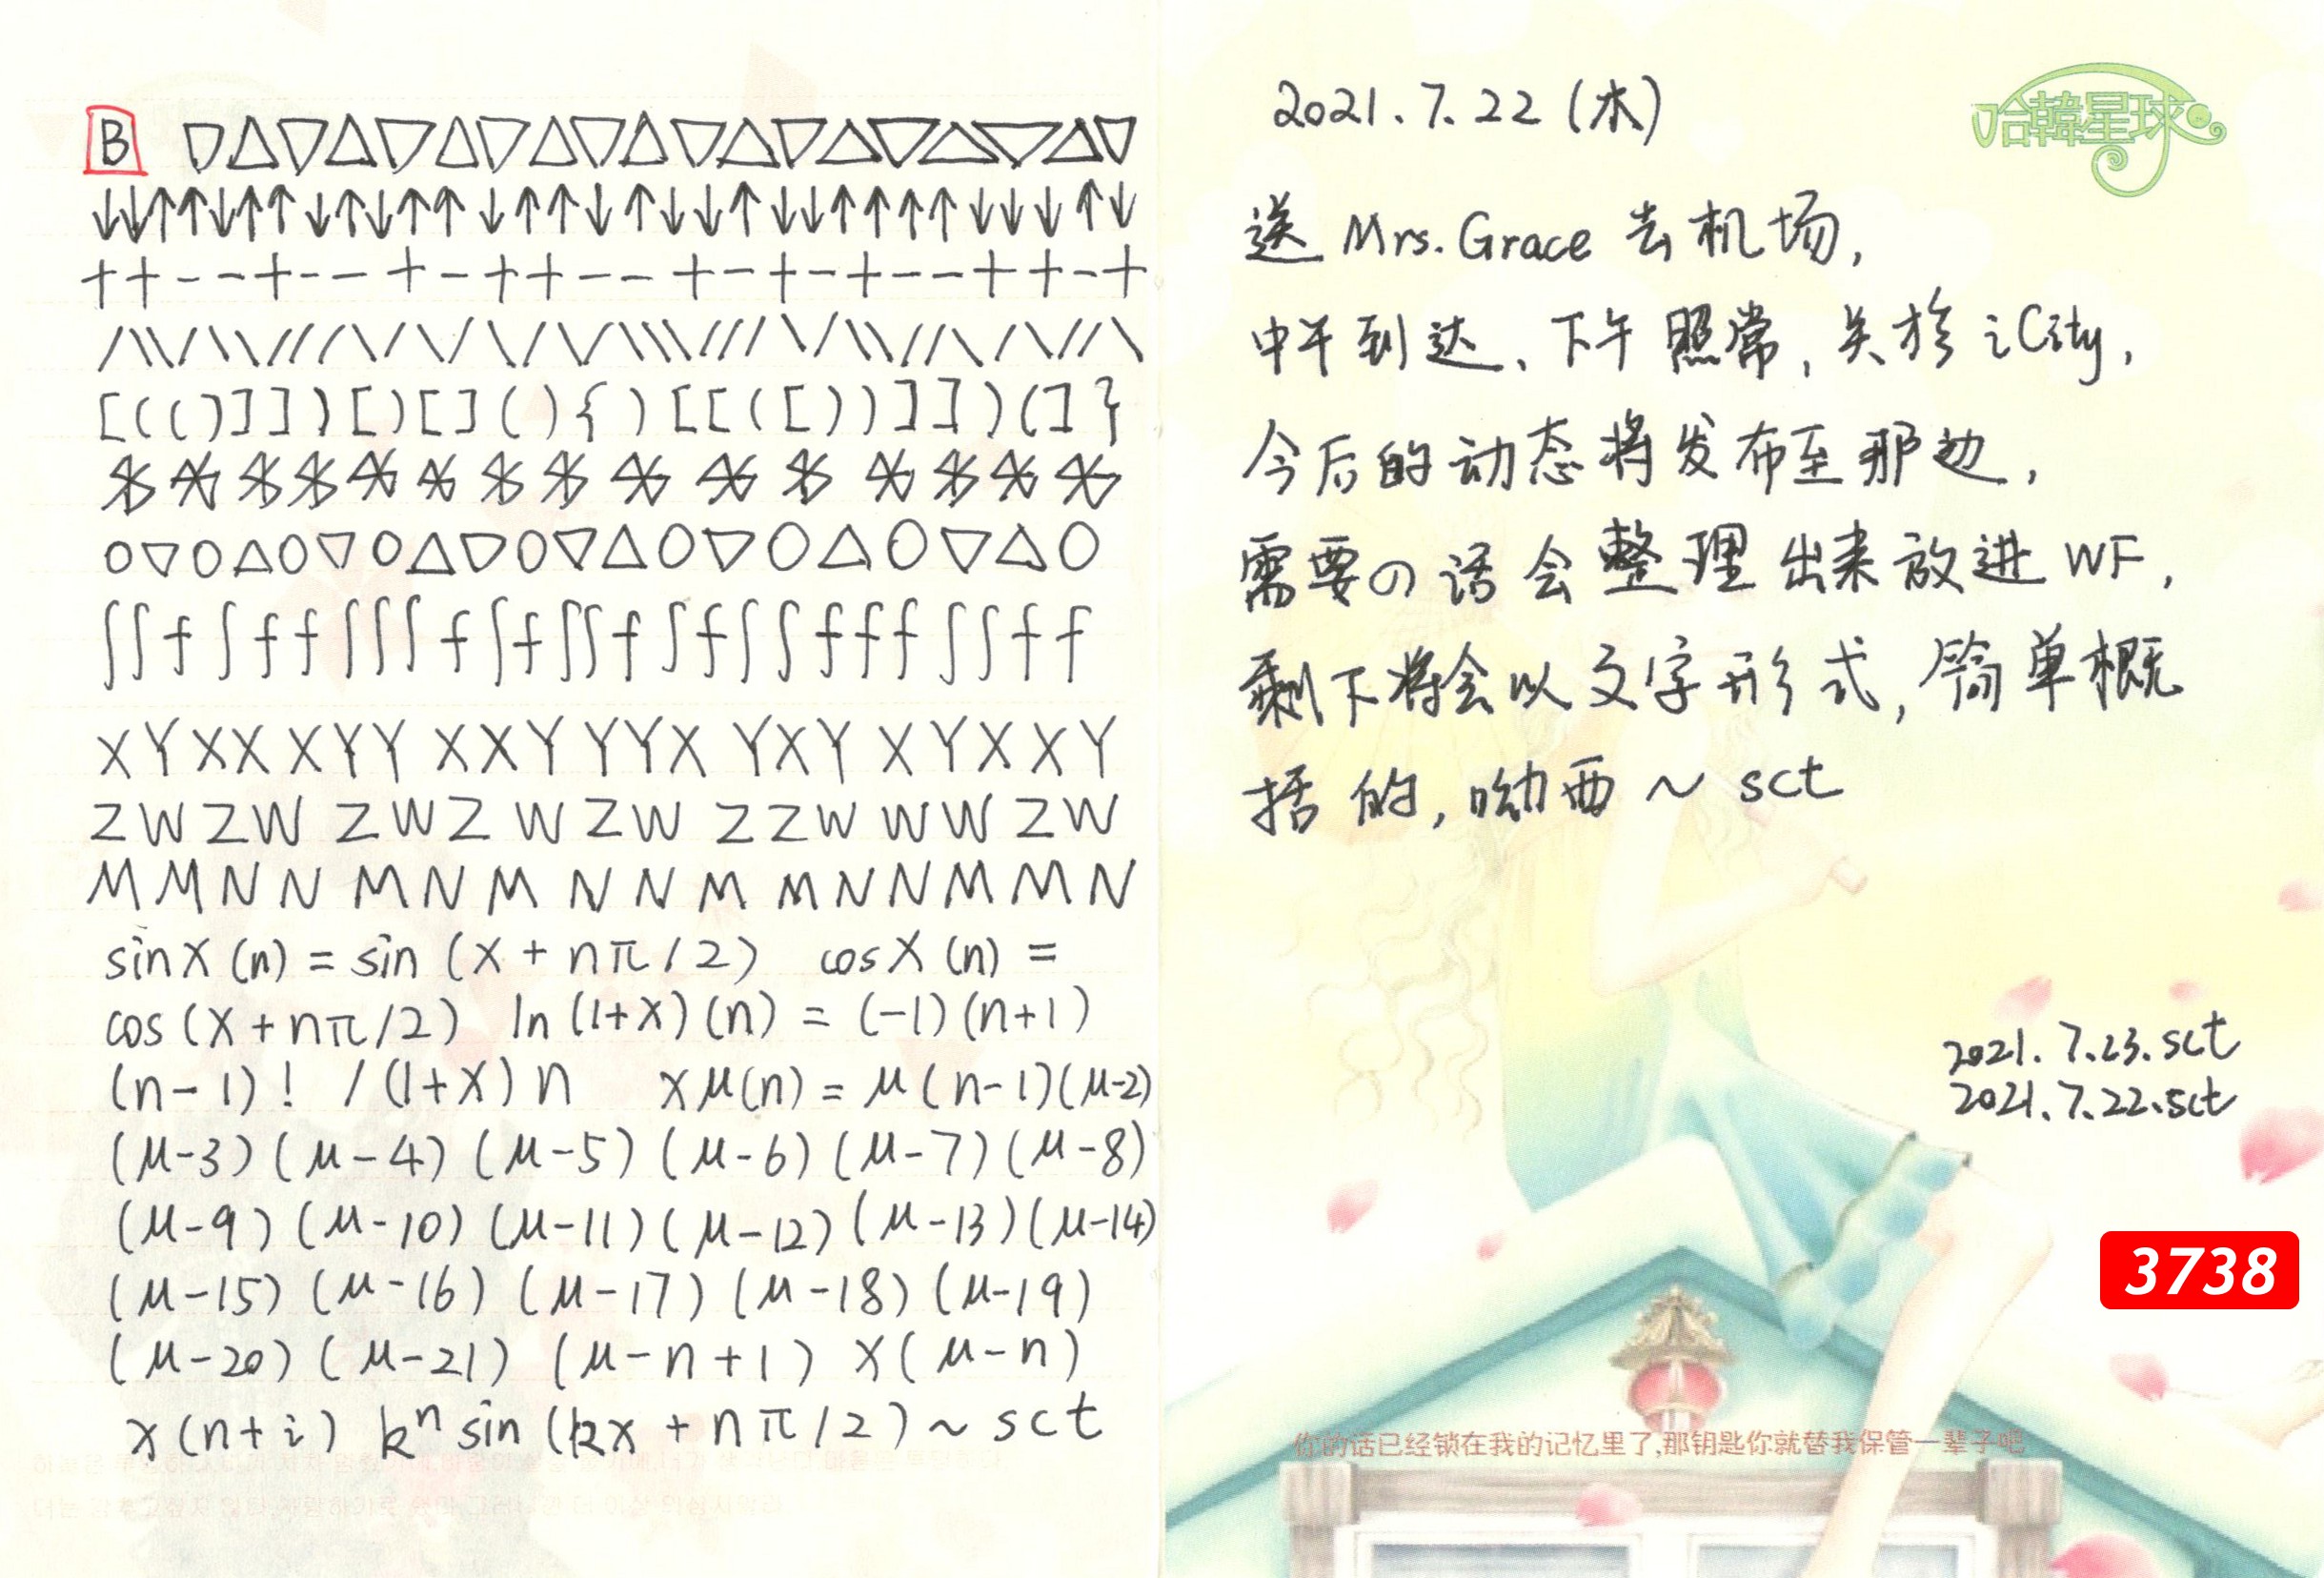 B ▽△▽△▽△▽△▽△▽△▽△▽△▽△▽
↓↓↑↑↓↑↑↓↑↓↑↑↓↑↑↓↑↓↓↑↓↓↑↑↑↑↓↓↓↑↓
++--+--+-++--+-+-+--++-+
[(()]])[)[](){)[[([))]])(]}
○▽○△○▽○△▽○▽△○▽○△○▽△○
∫∫f∫ff∫∫∫f∫f∫∫f∫f∫∫fff∫∫ff
XYXX XYY XXY YYX YXY XYXXY
ZWZW ZWZ WZW ZZW WWZW
MMNN MNM NNM MNNMMN
sinX(n)=sin(X+nπ/2) cosX(n)=
cos(X+nπ/2) ln(1+X)(n)=(-1)(n+1)
(n-1)! /(1+X)n xμ(n)=μ(n-1)(μ-2)
(μ-3)(μ-4)(μ-5)(μ-6)(μ-7)(μ-8)
(μ-9)(μ-10)(μ-11)(μ-12)(μ-13)(μ-14)
(μ-15)(μ-16)(μ-17)(μ-18)(μ-19)
(μ-20)(μ-21)(μ-n+1) X(μ-n)
x(n+i) kⁿsin(kx+nπ/2)~sct
哈韓星球
2021.7.22(木)
送 Mrs.Grace 去机场,
中午到达、下午照常,关於iCity,
今后的动态将发布至那边,
需要の话会整理出来放进WF,
剩下将会以文字形式,简单概
括的,呦西~sct
2021.7.23.sct
2021.7.22.sct
3738
你的话已经锁在我的记忆里了,那钥匙你就替我保管一辈子吧